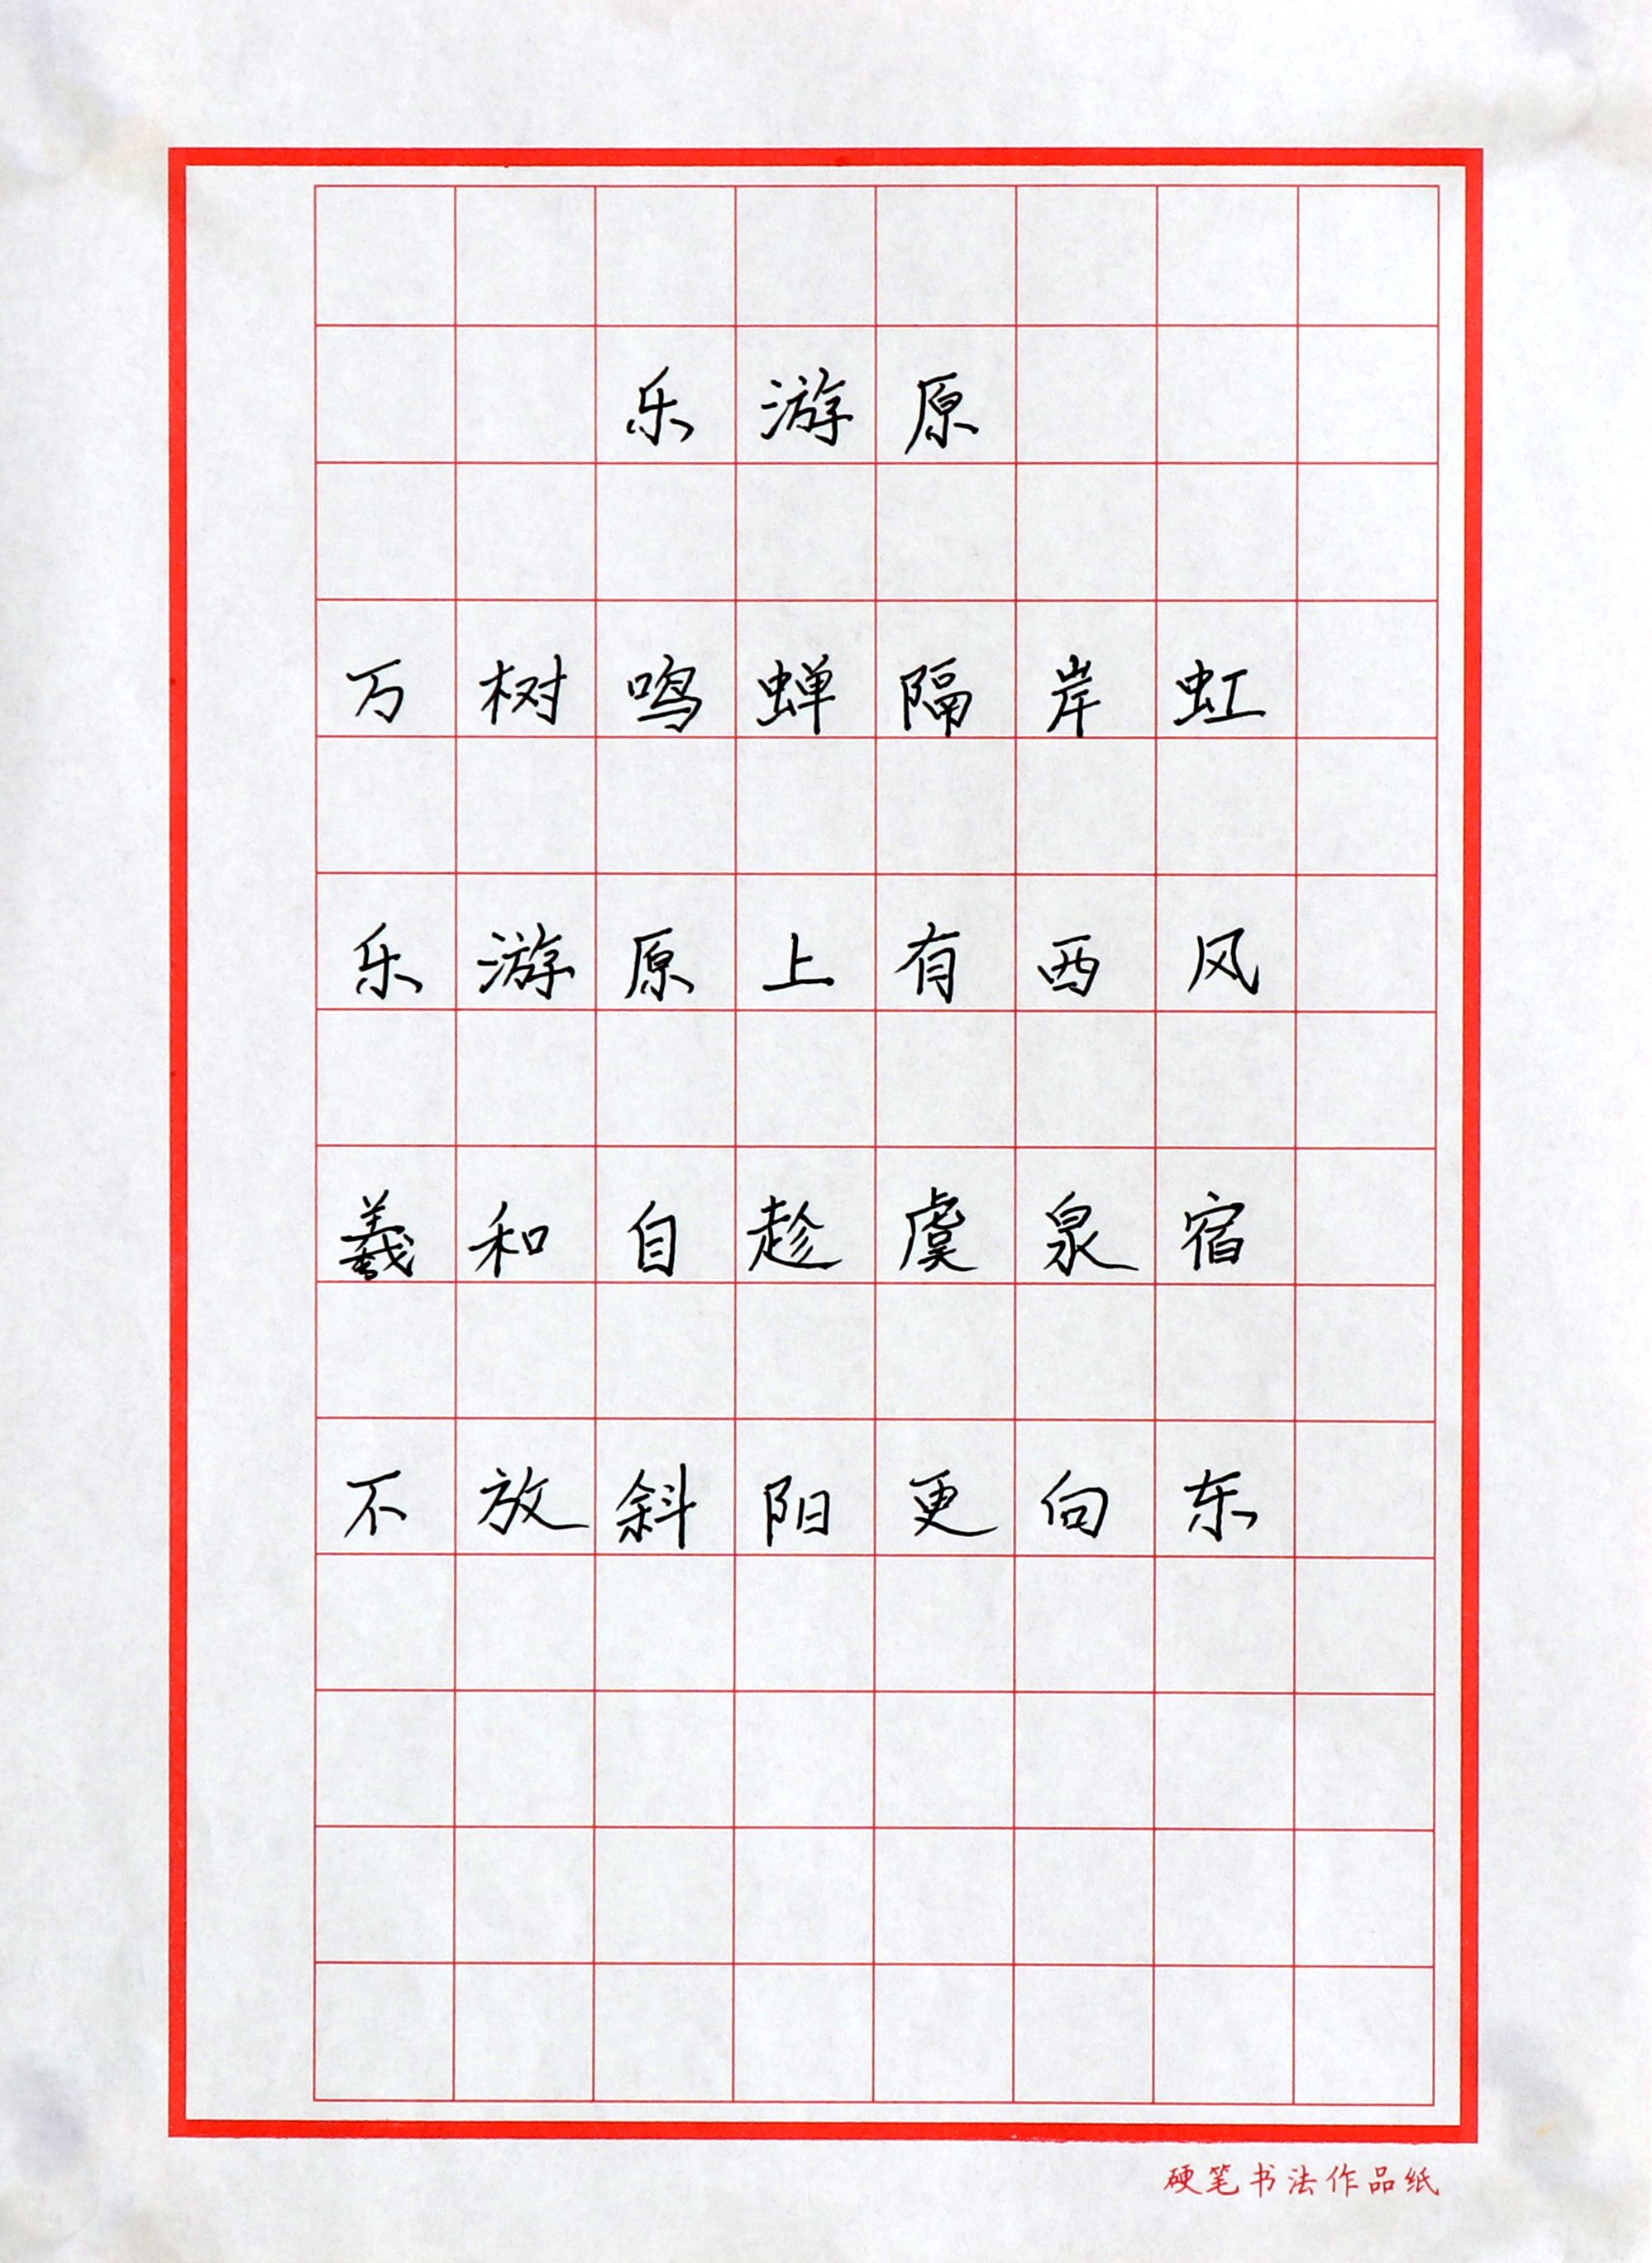 乐游原
万树鸣蝉隔岸虹
乐游原上有西风
羲和自趁虞泉宿
不放斜阳更向东
硬笔书法作品纸